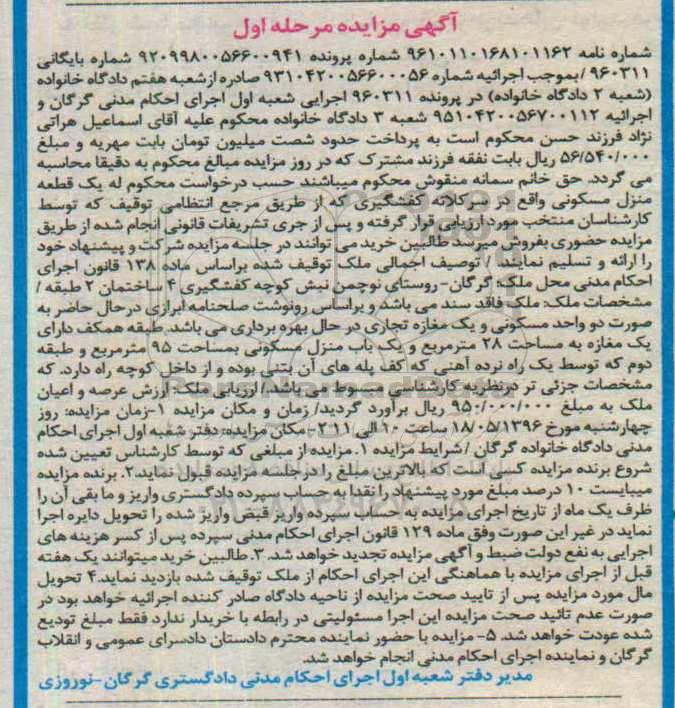 آگهی مزایده مرحله اول
شماره نامه ۹۶۱۰۱۱۰۱۶۸۱۰۱۱۶۲ شماره پرونده ۹۲۰۹۹۸۰۰۵۶۶۰۰۹۴۱ شماره بایگانی
۹۶۰۳۱۱ / بموجب اجرائیه شماره ۹۳۱۰۴۲۰۰۵۶۶۰۰۰۵۶ صادره از شعبه هفتم دادگاه خانواده
(شعبه ۲ دادگاه خانواده) در پرونده ۹۶۰۳۱۱ اجرایی شعبه اول اجرای احکام مدنی گرگان و
اجرائیه ۹۵۱۰۴۲۰۰۵۶۷۰۰۱۱۲ شعبه ۳ دادگاه خانواده محکوم علیه آقای اسماعیل هراتی
نژاد فرزند حسن محکوم است به پرداخت حدود شصت میلیون تومان بابت مهریه و مبلغ
۵۶/۵۴۰/۰۰۰ ریال بابت نفقه فرزند مشترک که در روز مزایده مبالغ محکوم به دقیقا محاسبه
می گردد. حق خانم سمانه منقوش محکوم میباشند حسب درخواست محکوم له یک قطعه
منزل مسکونی واقع در سرکلاته کفشگیری که از طریق مرجع انتظامی توقیف که توسط
کارشناسان منتخب مورد ارزیابی قرار گرفته و پس از جری تشریفات قانونی انجام شده از طریق
مزایده حضوری بفروش میرسد طالبین خرید می توانند در جلسه مزایده شرکت و پیشنهاد خود
را ارائه و تسلیم نمایند. / توصیف اجمالی ملک توقیف شده براساس ماده ۱۳۸ قانون اجرای
احکام مدنی محل ملک: گرگان- روستای نوچمن نبش کوچه کفشگیری ۴ ساختمان ۲ طبقه /
مشخصات ملک: ملک فاقد سند می باشد و براساس رونوشت صلحنامه ابرازی درحال حاضر به
صورت دو واحد مسکونی و یک مغازه تجاری در حال بهره برداری می باشد. طبقه همکف دارای
یک مغازه به مساحت ۲۸ مترمربع و یک باب منزل مسکونی بمساحت ۹۵ مترمربع و طبقه
دوم که توسط یک راه نرده آهنی که کف پله های آن بتنی بوده و از داخل کوچه راه دارد. که
مشخصات جزئی تر درنظریه کارشناسی مبسوط می باشد / ارزیابی ملک: ارزش عرصه و اعیان
ملک به مبلغ ۹۵۰/۰۰۰/۰۰۰ ریال برآورد گردید/ زمان و مکان مزایده ۱-زمان مزایده: روز
چهارشنبه مورخ ۱۸/۰۵/۱۳۹۶ ساعت ۱۰ الی ۱۱ ۲-مکان مزایده: دفتر شعبه اول اجرای احکام
مدنی دادگاه خانواده گرگان / شرایط مزایده ۱. مزایده از مبلغی که توسط کارشناس تعیین شده
شروع برنده مزایده کسی است که بالاترین مبلغ را درجلسه مزایده قبول نماید.۲. برنده مزایده
میبایست ۱۰ درصد مبلغ مورد پیشنهاد را نقدا به حساب سپرده دادگستری واریز و ما بقی آن را
ظرف یک ماه از تاریخ اجرای مزایده به حساب سپرده واریز قبض واریز شده را تحویل دایره اجرا
نماید در غیر این صورت وفق ماده ۱۲۹ قانون اجرای احکام مدنی سپرده پس از کسر هزینه های
اجرایی به نفع دولت ضبط و آگهی مزایده تجدید خواهد شد. ۳. طالبین خرید میتوانند یک هفته
قبل از اجرای مزایده با هماهنگی این اجرای احکام از ملک توقیف شده بازدید نماید.۴ تحویل
مال مورد مزایده پس از تایید صحت مزایده از ناحیه دادگاه صادر کننده اجرائیه خواهد بود در
صورت عدم تائید صحت مزایده این اجرا مسئولیتی در رابطه با خریدار ندارد فقط مبلغ تودیع
شده عودت خواهد شد. ۵- مزایده با حضور نماینده محترم دادستان دادسرای عمومی و انقلاب
گرگان و نماینده اجرای احکام مدنی انجام خواهد شد.
مدیر دفتر شعبه اول اجرای احکام مدنی دادگستری گرگان-نوروزی